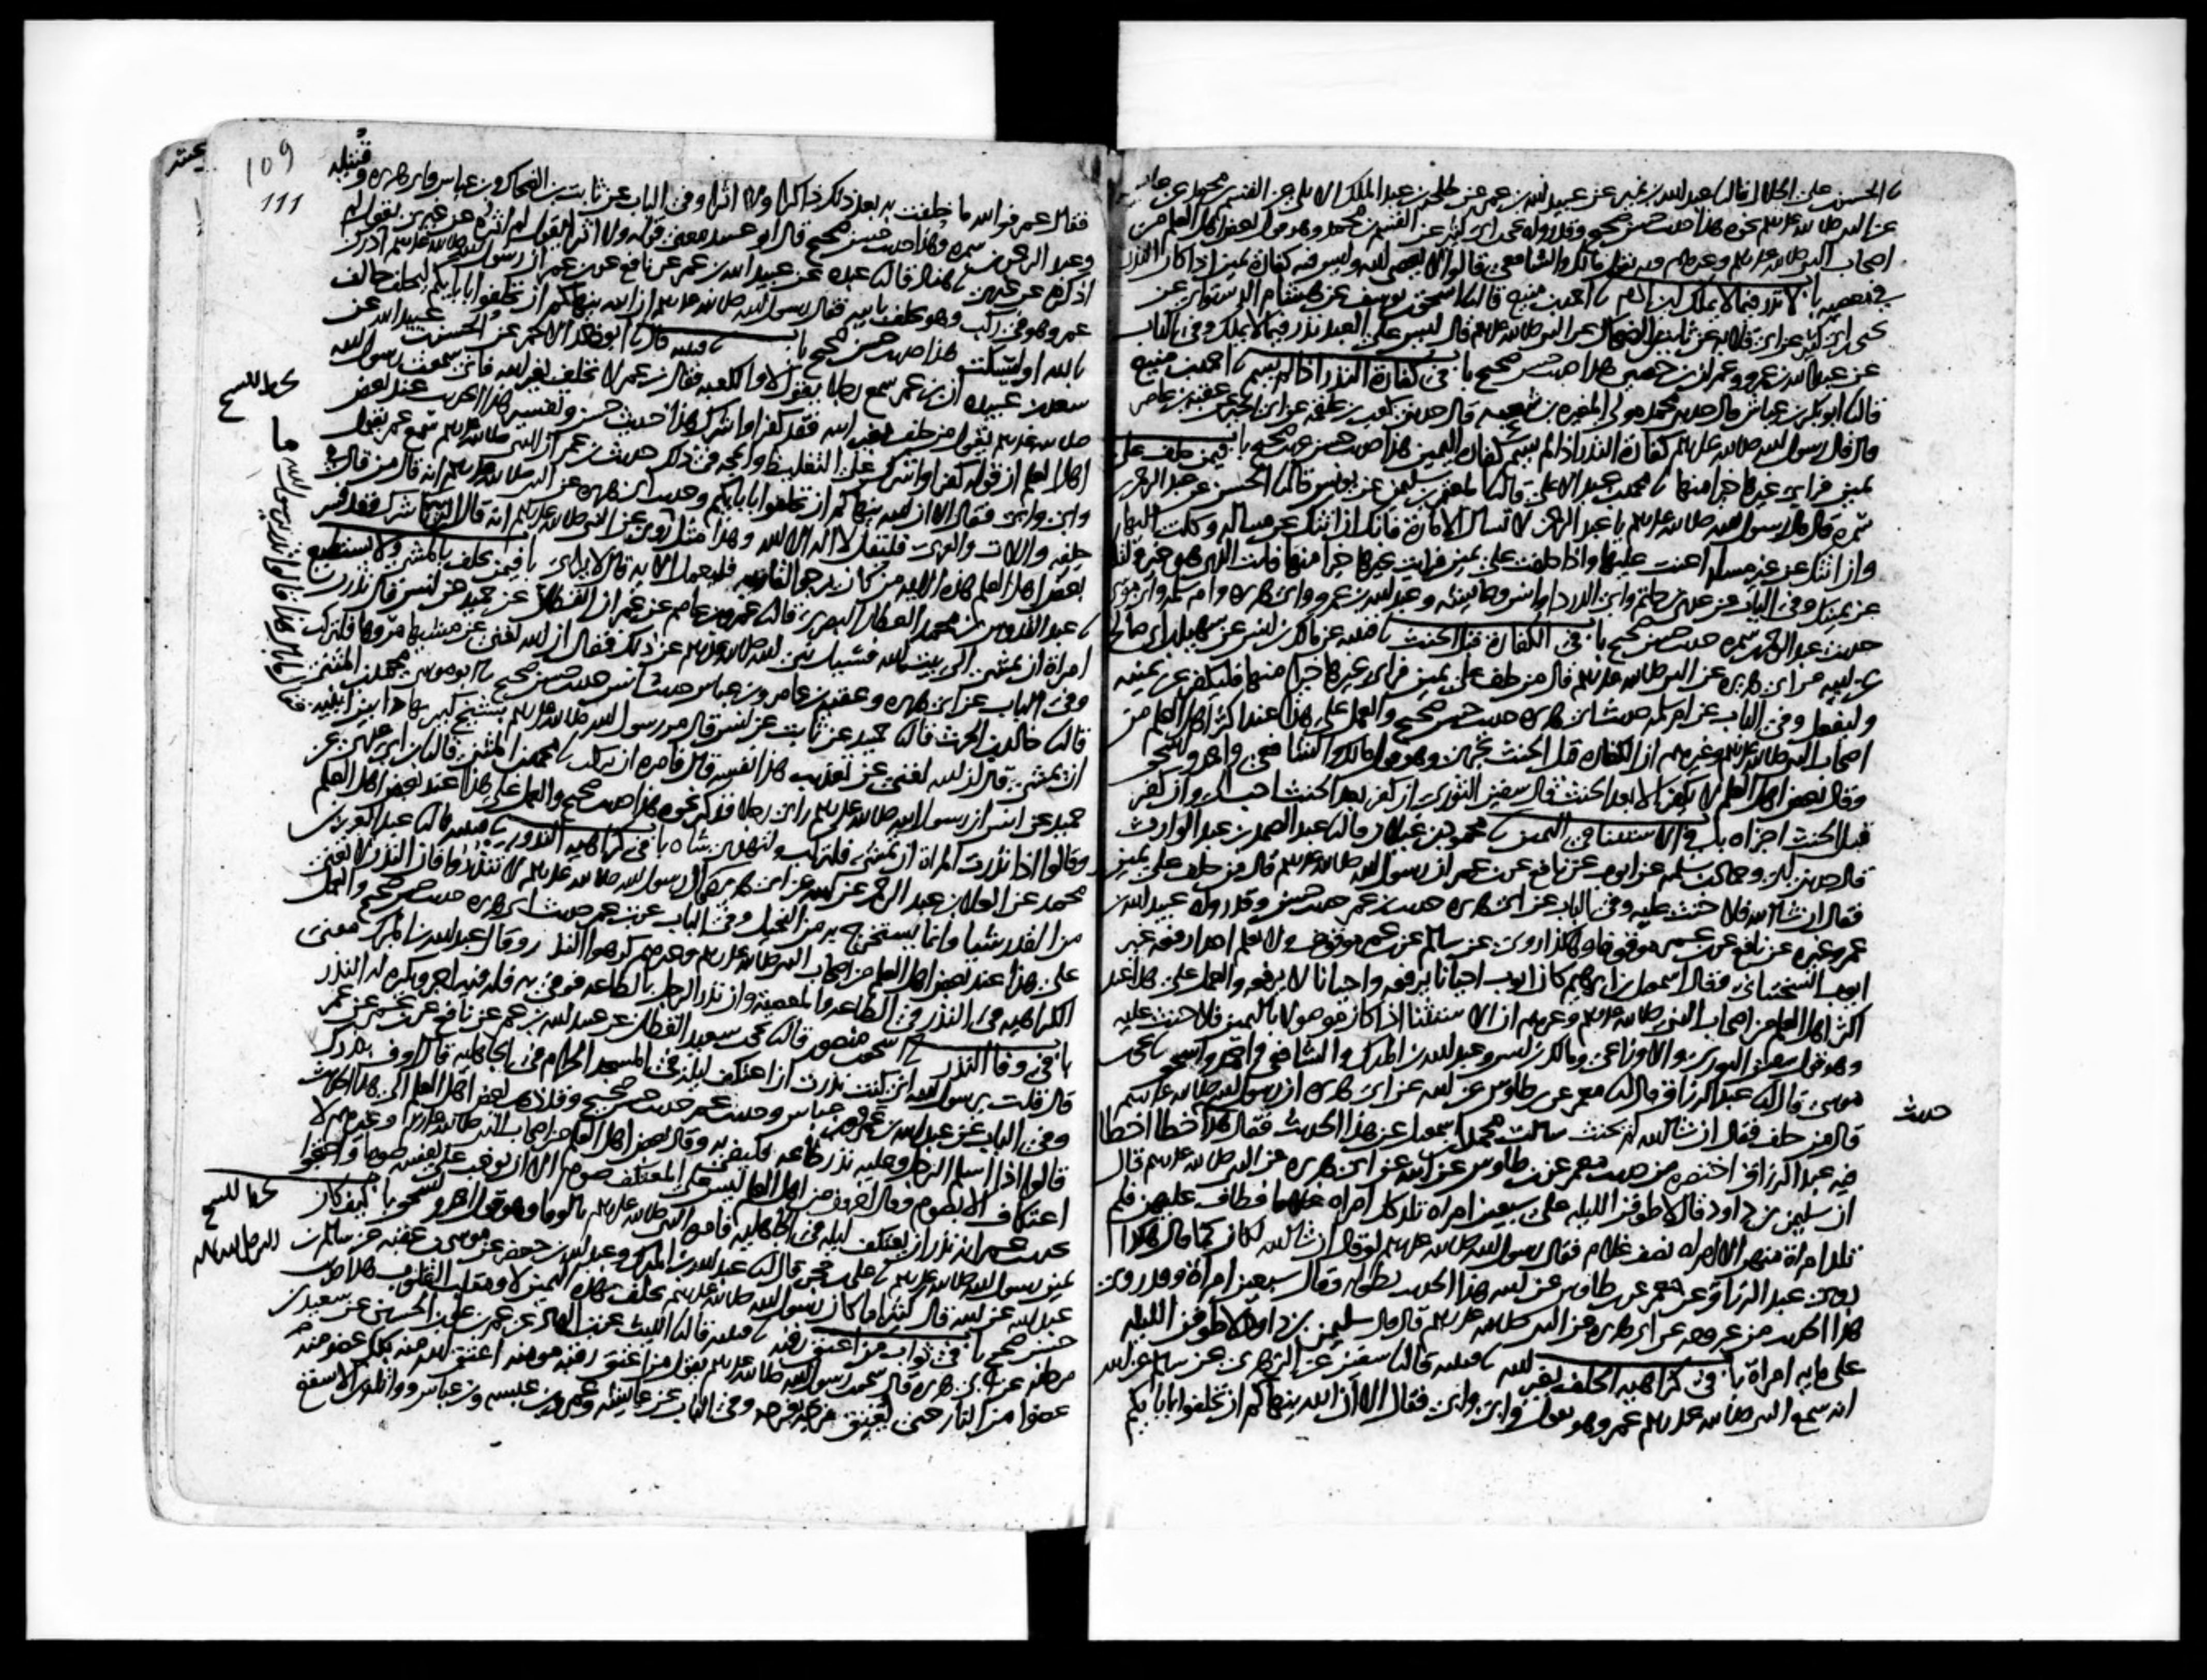 نا الحسن بن علي الخلال قال نا عبد الله بن نمير عن عبيد الله بن عمر عن طلحة بن عبد الملك الايلي عن القسم بن محمد عن عائشة
عن النبي صلى الله عليه وسلم نحوه هذا حديث حسن صحيح وقد رواه يحيى بن ابي كثير عن القسم بن محمد وهو قول بعض اهل العلم من
اصحاب النبي صلى الله عليه وسلم وغيرهم وبه يقول مالك والشافعي قالوا لا يعصي الله وليس فيه كفارة يمين اذا كان النذر
في معصية باب لا نذر فيما لا يملك ابن ادم نا احمد بن منيع قال نا اسحق بن يوسف عن هشام الدستوائي عن
يحيى بن ابي كثير عن ابي قلابة عن ثابت بن الضحاك عن النبي صلى الله عليه وسلم قال ليس على العبد نذر فيما لا يملك وفي الباب
عن عبد الله بن عمرو وعمران بن حصين هذا حديث حسن صحيح باب في كفارة النذر اذا لم يسم نا احمد بن منيع
قال نا ابو بكر بن عياش قال حدثني محمد مولى المغيرة بن شعبة قال حدثني كعب بن علقمة عن ابي الخير عن عقبة بن عامر
قال قال رسول الله صلى الله عليه وسلم كفارة النذر اذا لم يسم كفارة اليمين هذا حديث حسن صحيح باب فيمن حلف على
يمين فراى غيرها خيرا منها نا محمد بن عبد الاعلى قال نا المعتمر بن سليمن عن يونس قال نا الحسن عن عبد الرحمن بن
سمرة قال قال رسول الله صلى الله عليه وسلم يا عبد الرحمن لا تسال الامارة فانك ان اتتك عن مسالة وكلت اليها
وان اتتك عن غير مسالة اعنت عليها واذا حلفت على يمين فرايت غيرها خيرا منها فات الذي هو خير ولتكفر
عن يمينك وفي الباب عن عدي بن حاتم وابي الدرداء وانس وعائشة وعبد الله بن عمرو وابي هريرة وام سلمة وابي موسى
حديث عبد الرحمن بن سمرة حديث حسن صحيح باب في الكفارة قبل الحنث نا قتيبة عن مالك بن انس عن سهيل بن ابي صالح
عن ابيه عن ابي هريرة عن النبي صلى الله عليه وسلم قال من حلف على يمين فراى غيرها خيرا منها فليكفر عن يمينه
وليفعل وفي الباب عن ام سلمة حديث ابي هريرة حديث حسن صحيح والعمل على هذا عند اكثر اهل العلم من
اصحاب النبي صلى الله عليه وسلم وغيرهم ان الكفارة قبل الحنث تجزئ وهو قول مالك والشافعي واحمد واسحق
وقال بعض اهل العلم لا يكفر الا بعد الحنث قال سفين الثوري ان كفر بعد الحنث احب الي وان كفر
قبل الحنث اجزاه باب في الاستثنا في اليمين نا محمود بن غيلان قال نا عبد الصمد بن عبد الوارث
قال حدثني ابي وحماد بن سلمة عن ايوب عن نافع عن بن عمر ان رسول الله صلى الله عليه وسلم قال من حلف على يمين
فقال ان شا الله فلا حنث عليه وفي الباب عن ابي هريرة حديث بن عمر حديث حسن وقد رواه عبيد الله بن
عمر وغيره عن نافع عن بن عمر موقوفا وهكذا روي عن سالم عن بن عمر موقوف ولا نعلم احدا رفعه غير
ايوب السختياني وقال اسمعيل بن ابرهيم كان ايوب احيانا يرفعه واحيانا لا يرفعه والعمل على هذا عند
اكثر اهل العلم من اصحاب النبي صلى الله عليه وسلم وغيرهم ان الاستثنا اذا كان موصولا باليمين فلا حنث عليه
وهو قول سفين الثوري والاوزاعي ومالك بن انس وعبد الله بن المبارك والشافعي واحمد واسحق نا يحيى بن
موسى قال نا عبد الرزاق قال نا معمر عن بن طاوس عن ابيه عن ابي هريرة ان رسول الله صلى الله عليه وسلم
قال من حلف فقال ان شا الله لم يحنث سالت محمد بن اسمعيل عن هذا الحديث فقال هذا خطا اخطا
فيه عبد الرزاق اختصره من حديث معمر عن بن طاوس عن ابيه عن ابي هريرة عن النبي صلى الله عليه وسلم قال
ان سليمن بن داود قال لاطوفن الليلة على سبعين امراة تلد كل امراة غلاما فطاف عليهن فلم
تلد امراة منهن الا امراة نصف غلام فقال رسول الله صلى الله عليه وسلم لو قال ان شا الله لكان كما قال هكذا
روي عن عبد الرزاق عن معمر عن بن طاوس عن ابيه هذا الحديث بطوله وقال سبعين امراة وقد روي
هذا الحديث من غير وجه عن ابي هريرة عن النبي صلى الله عليه وسلم قال قال سليمن بن داود لاطوفن الليلة
على ماية امراة باب في كراهية الحلف بغير الله نا قتيبة قال نا سفين عن الزهري عن سالم عن ابيه
انه سمع النبي صلى الله عليه وسلم عمر وهو يقول وابي وابي فقال الا ان الله ينهاكم ان تحلفوا بابايكم
حديث
109
111
فقال عمر فوالله ما حلفت به بعد ذلك ذاكرا ولا اثرا وفي الباب عن ثابت بن الضحاك وبن عباس وابي هريرة وقتيلة
وعبد الرحمن بن سمرة وهذا حديث حسن صحيح قال ابو عبيد معنى قوله ولا اثرا يقول لم اثره عن غيري يقول لم
اذكره عن غيري نا هناد قال نا عبدة عن عبيد الله بن عمر عن نافع عن بن عمر ان رسول الله صلى الله عليه وسلم ادرك
عمر وهو في ركب وهو يحلف بابيه فقال رسول الله صلى الله عليه وسلم ان الله ينهاكم ان تحلفوا بابايكم ليحلف حالف
بالله او ليسكت هذا حديث حسن صحيح باب نا قتيبة قال نا ابو خالد الاحمر عن الحسن بن عبيد الله عن
سعد بن عبيدة ان بن عمر سمع رجلا يقول لا والكعبة فقال بن عمر لا تحلف بغير الله فاني سمعت رسول الله
صلى الله عليه وسلم يقول من حلف بغير الله فقد كفر او اشرك هذا حديث حسن وتفسير هذا الحديث عند بعض
اهل العلم ان قوله كفر او اشرك على التغليظ والحجة في ذلك حديث بن عمر ان النبي صلى الله عليه وسلم سمع عمر يقول
وابي وابي فقال الا ان الله ينهاكم ان تحلفوا بابايكم وحديث ابي هريرة عن النبي صلى الله عليه وسلم انه قال من قال في
حلفه واللات والعزى فليقل لا اله الا الله وهذا مثل ما روي عن النبي صلى الله عليه وسلم انه قال الريا شرك فقد فسر
بعض اهل العلم هذه الاية من كان يرجو لقا ربه فليعمل الاية قال لا يرائي باب فيمن يحلف بالمشي ولا يستطيع
نا عبد القدوس بن محمد العطار البصري قال نا عمرو بن عاصم عن عمران القطان عن حميد عن انس قال نذرت
امراة ان تمشي الى بيت الله فسئل نبي الله صلى الله عليه وسلم عن ذلك فقال ان الله لغني عن مشيها مروها فلتركب
وفي الباب عن ابي هريرة وعقبة بن عامر وبن عباس حديث انس حديث حسن صحيح نا ابو موسى محمد بن المثنى
قال نا خالد بن الحرث قال نا حميد عن ثابت عن انس قال مر رسول الله صلى الله عليه وسلم بشيخ كبير يهادى بين ابنيه
ان يمشي قال ان الله لغني عن تعذيب هذا نفسه قال فامره ان يركب نا محمد بن المثنى قال نا بن ابي عدي عن
حميد عن انس ان رسول الله صلى الله عليه وسلم راى رجلا فذكر نحوه هذا حديث صحيح والعمل على هذا عند بعض اهل العلم
وقالوا اذا نذرت المراة ان تمشي فلتركب ولتهد شاة باب في كراهية النذور نا قتيبة قال نا عبد العزيز بن
محمد عن العلا بن عبد الرحمن عن ابيه عن ابي هريرة قال قال رسول الله صلى الله عليه وسلم لا تنذروا فان النذر لا يغني
من القدر شيا وانما يستخرج به من البخيل وفي الباب عن بن عمر حديث ابي هريرة حديث حسن صحيح والعمل
على هذا عند بعض اهل العلم من اصحاب النبي صلى الله عليه وسلم وغيرهم كرهوا النذر وقال عبد الله بن المبارك معنى
الكراهية في النذر في الطاعة والمعصية وان نذر الرجل بالطاعة فوفى به فله فيه اجر ويكره له النذر
باب في وفا النذر نا اسحق بن منصور قال نا يحيى بن سعيد القطان عن عبيد الله بن عمر عن نافع عن بن عمر عن عمر
قال قلت يرسول الله اني كنت نذرت ان اعتكف ليلة في المسجد الحرام في الجاهلية قال اوف بنذرك
وفي الباب عن عبد الله بن عمرو وبن عباس وحديث عمر حديث حسن صحيح وقد ذهب بعض اهل العلم الى هذا الحديث
قالوا اذا اسلم الرجل وعليه نذر طاعة فليف به وقال بعض اهل العلم من اصحاب النبي صلى الله عليه وسلم وغيرهم لا
اعتكاف الا بصوم وقال اخرون من اهل العلم ليس على المعتكف صوم الا ان يوجب على نفسه صوما واحتجوا
بحديث عمر انه نذر ان يعتكف ليلة في الجاهلية فامره النبي صلى الله عليه وسلم بالوفا وهو قول احمد واسحق باب كيف كان
يمين رسول الله صلى الله عليه وسلم نا علي بن حجر قال نا عبد الله بن المبارك وعبد الله بن جعفر عن موسى بن عقبة عن سالم بن
عبد الله عن ابيه قال كثيرا ما كان رسول الله صلى الله عليه وسلم يحلف بهذه اليمين لا ومقلب القلوب هذا حديث
حسن صحيح باب في ثواب من اعتق رقبة نا قتيبة قال نا الليث عن بن الهاد عن عمر بن علي بن الحسين عن سعيد بن
مرجانة عن ابي هريرة قال سمعت رسول الله صلى الله عليه وسلم يقول من اعتق رقبة مومنة اعتق الله منه بكل عضو منه
عضوا من النار حتى يعتق فرجه بفرجه وفي الباب عن عايشة وعمرو بن عبسة وبن عباس وواثلة بن الاسقع
فقال ما بال هذا قالوا نذر يرسول الله